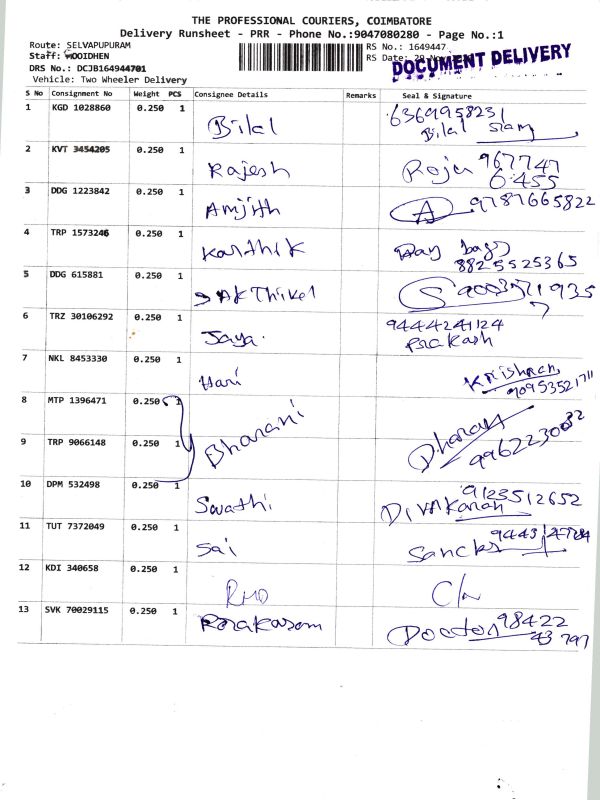 THE PROFESSIONAL COURIERS, COIMBATORE
Delivery Runsheet - PRR - Phone No.:9047080280 - Page No.:1
Route: SELVAPUPURAM
RS No.: 1649447
Staff: MOOIDHEN
RS Date:
DOCUMENT DELIVERY
DRS No.: DCJB164944701
Vehicle: Two Wheeler Delivery
S No Consignment No Weight PCS Consignee Details Remarks Seal & Signature
1 KGD 1028860 0.250 1 Bilal 6369958231
Bilal
2 KVT 3454205 0.250 1 Rajesh Raju 967747
6455
3 DDG 1223842 0.250 1 Amjith A 9787665822
4 TRP 1573246 0.250 1 Karthik bags
8825525365
5 DDG 615881 0.250 1 SAKThivel S
6 TRZ 30106292 0.250 1 Jaya 9444241124
Prakash
7 NKL 8453330 0.250 1 Hari Krishnan
8 MTP 1396471 0.250 1 Bharani Dharan
9 TRP 9066148 0.250 1
10 DPM 532498 0.250 1 Swathi 9123512652
Divakaran
11 TUT 7372049 0.250 1 Sai
12 KDI 340658 0.250 1
13 SVK 70029115 0.250 1 Prakasam Doctor 98422
43797